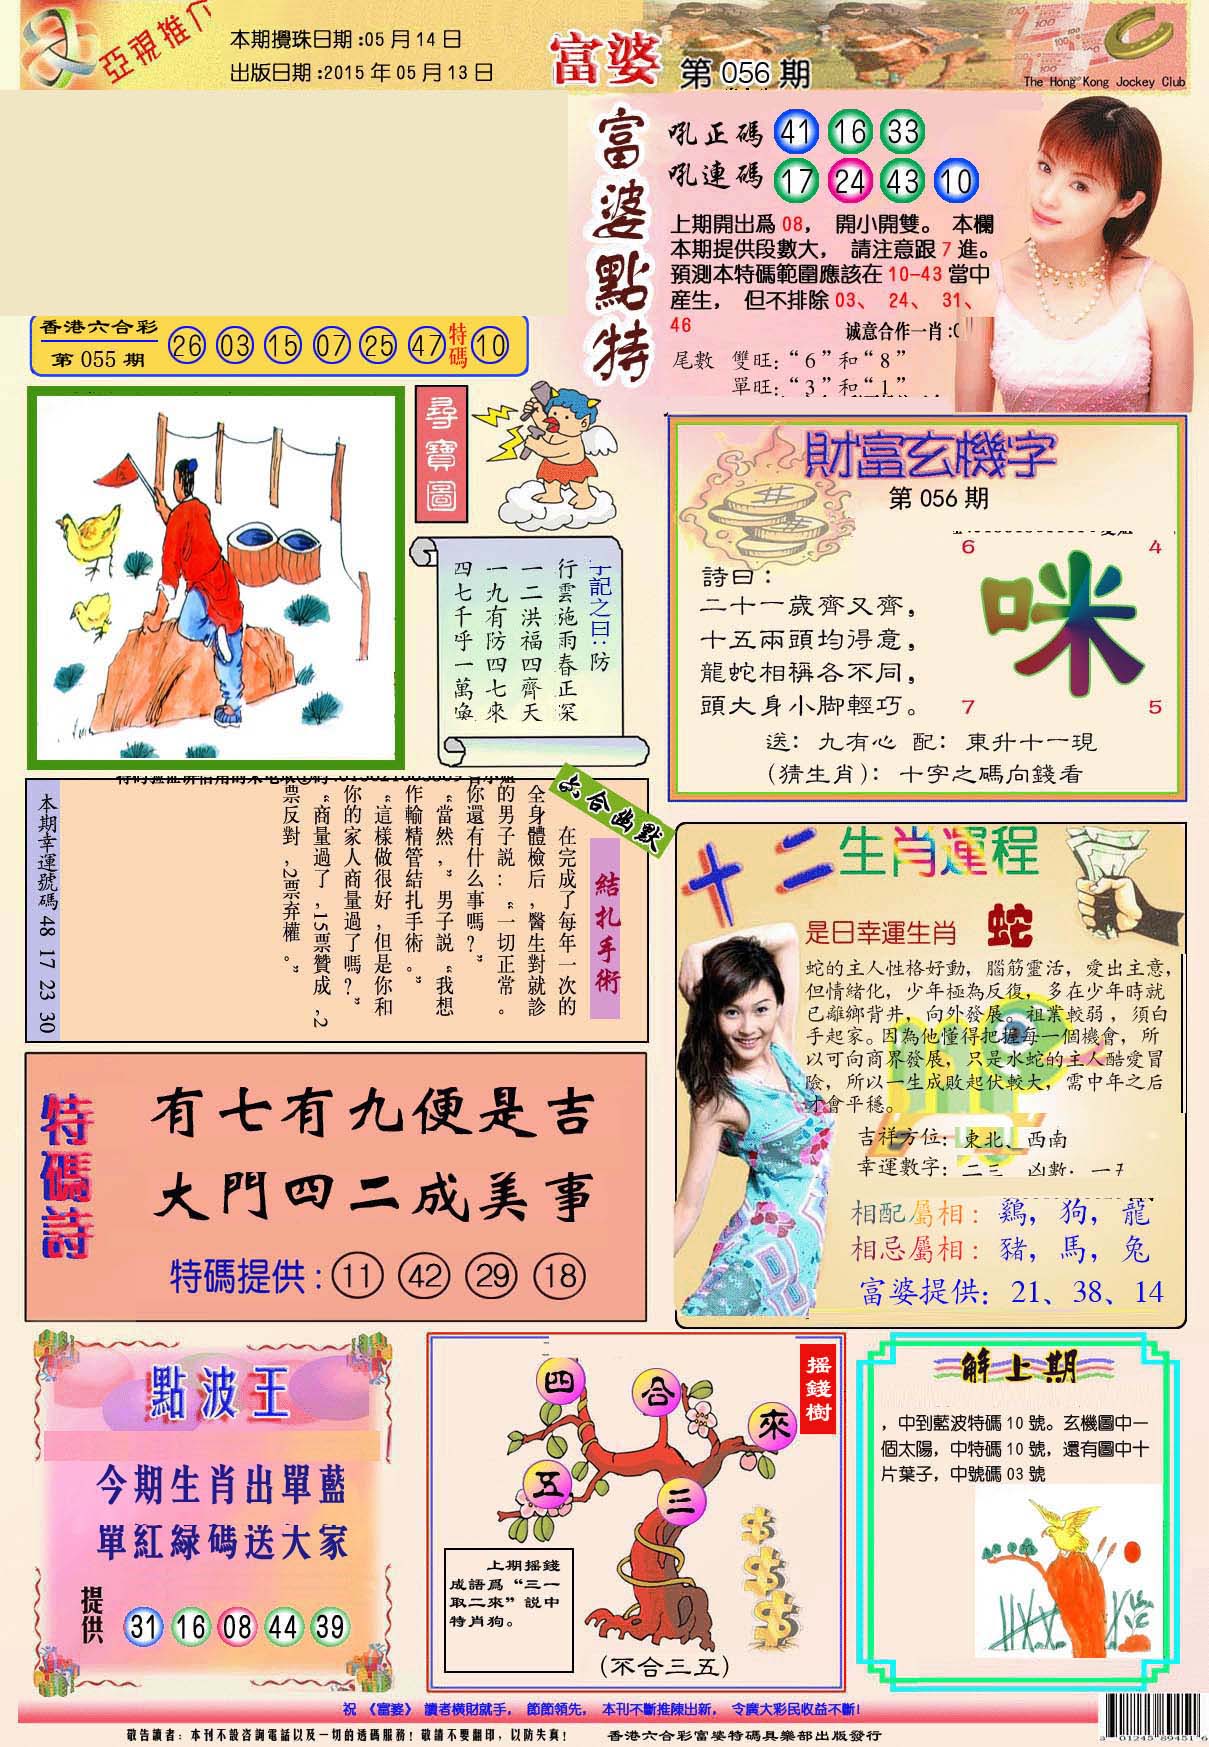 亞視推介
本期攪珠日期:05月14日
出版日期:2015年05月13日
富婆 第056期
The Hong Kong Jockey Club
富婆點特
吼正碼 41 16 33
吼連碼 17 24 43 10
上期開出爲08， 開小開雙。 本欄
本期提供段數大， 請注意跟7進。
預測本特碼範圍應該在10-43當中
産生， 但不排除03、 24、 31、
46
诚意合作一肖:
尾數 雙旺:“6”和“8”
單旺:“3”和“1”
香港六合彩
第055期
26 03 15 07 25 47 特碼 10
尋寶圖
字記之曰:防
行雲施雨春正深
一二洪福四齊天
一九有防四七來
四七千呼一萬喚
財富玄機字
第056期
詩曰：
二十一歲齊又齊，
十五兩頭均得意，
龍蛇相稱各不同，
頭大身小脚輕巧。
6 4
咪
7 5
送：九有心 配：東升十一現
(猜生肖)：十字之碼向錢看
六合幽默
結扎手術
在完成了每年一次的
全身體檢后,醫生對就診
的男子説:“一切正常。
你還有什么事嗎?”
“當然,”男子説“我想
作輸精管結扎手術。”
“這樣做很好,但是你和
你的家人商量過了嗎?”
“商量過了,15票贊成,2
票反對,2票弃權。”
本期幸運號碼 48 17 23 30
十二生肖運程
是日幸運生肖 蛇
蛇的主人性格好動，腦筋靈活，愛出主意，
但情緒化，少年極為反復，多在少年時就
已離鄉背井，向外發展。祖業較弱，須白
手起家。因為他懂得把握每一個機會，所
以可向商界發展，只是水蛇的主人酷愛冒
險，所以一生成敗起伏較大，需中年之后
才會平穩。
吉祥方位：東北、西南
幸運數字：二三 凶數：一7
相配屬相：鷄，狗，龍
相忌屬相：豬，馬，兔
富婆提供：21、38、14
特碼詩
有七有九便是吉
大門四二成美事
特碼提供:11 42 29 18
點波王
今期生肖出單藍
單紅緑碼送大家
提供 31 16 08 44 39
搖錢樹
四 合 來
五 三
上期摇錢
成語爲“三一
取二來”説中
特肖狗。
(不合三五)
解上期
，中到藍波特碼10號。玄機圖中一
個太陽，中特碼10號，還有圖中十
片葉子，中號碼03號
祝 《富婆》 讀者横財就手， 節節領先， 本刊不斷推陳出新， 令廣大彩民收益不斷!
敬告讀者：本刊不設咨詢電話以及一切的透碼服務！敬請不要翻印，以防失真！ 香港六合彩富婆特碼具樂部出版發行